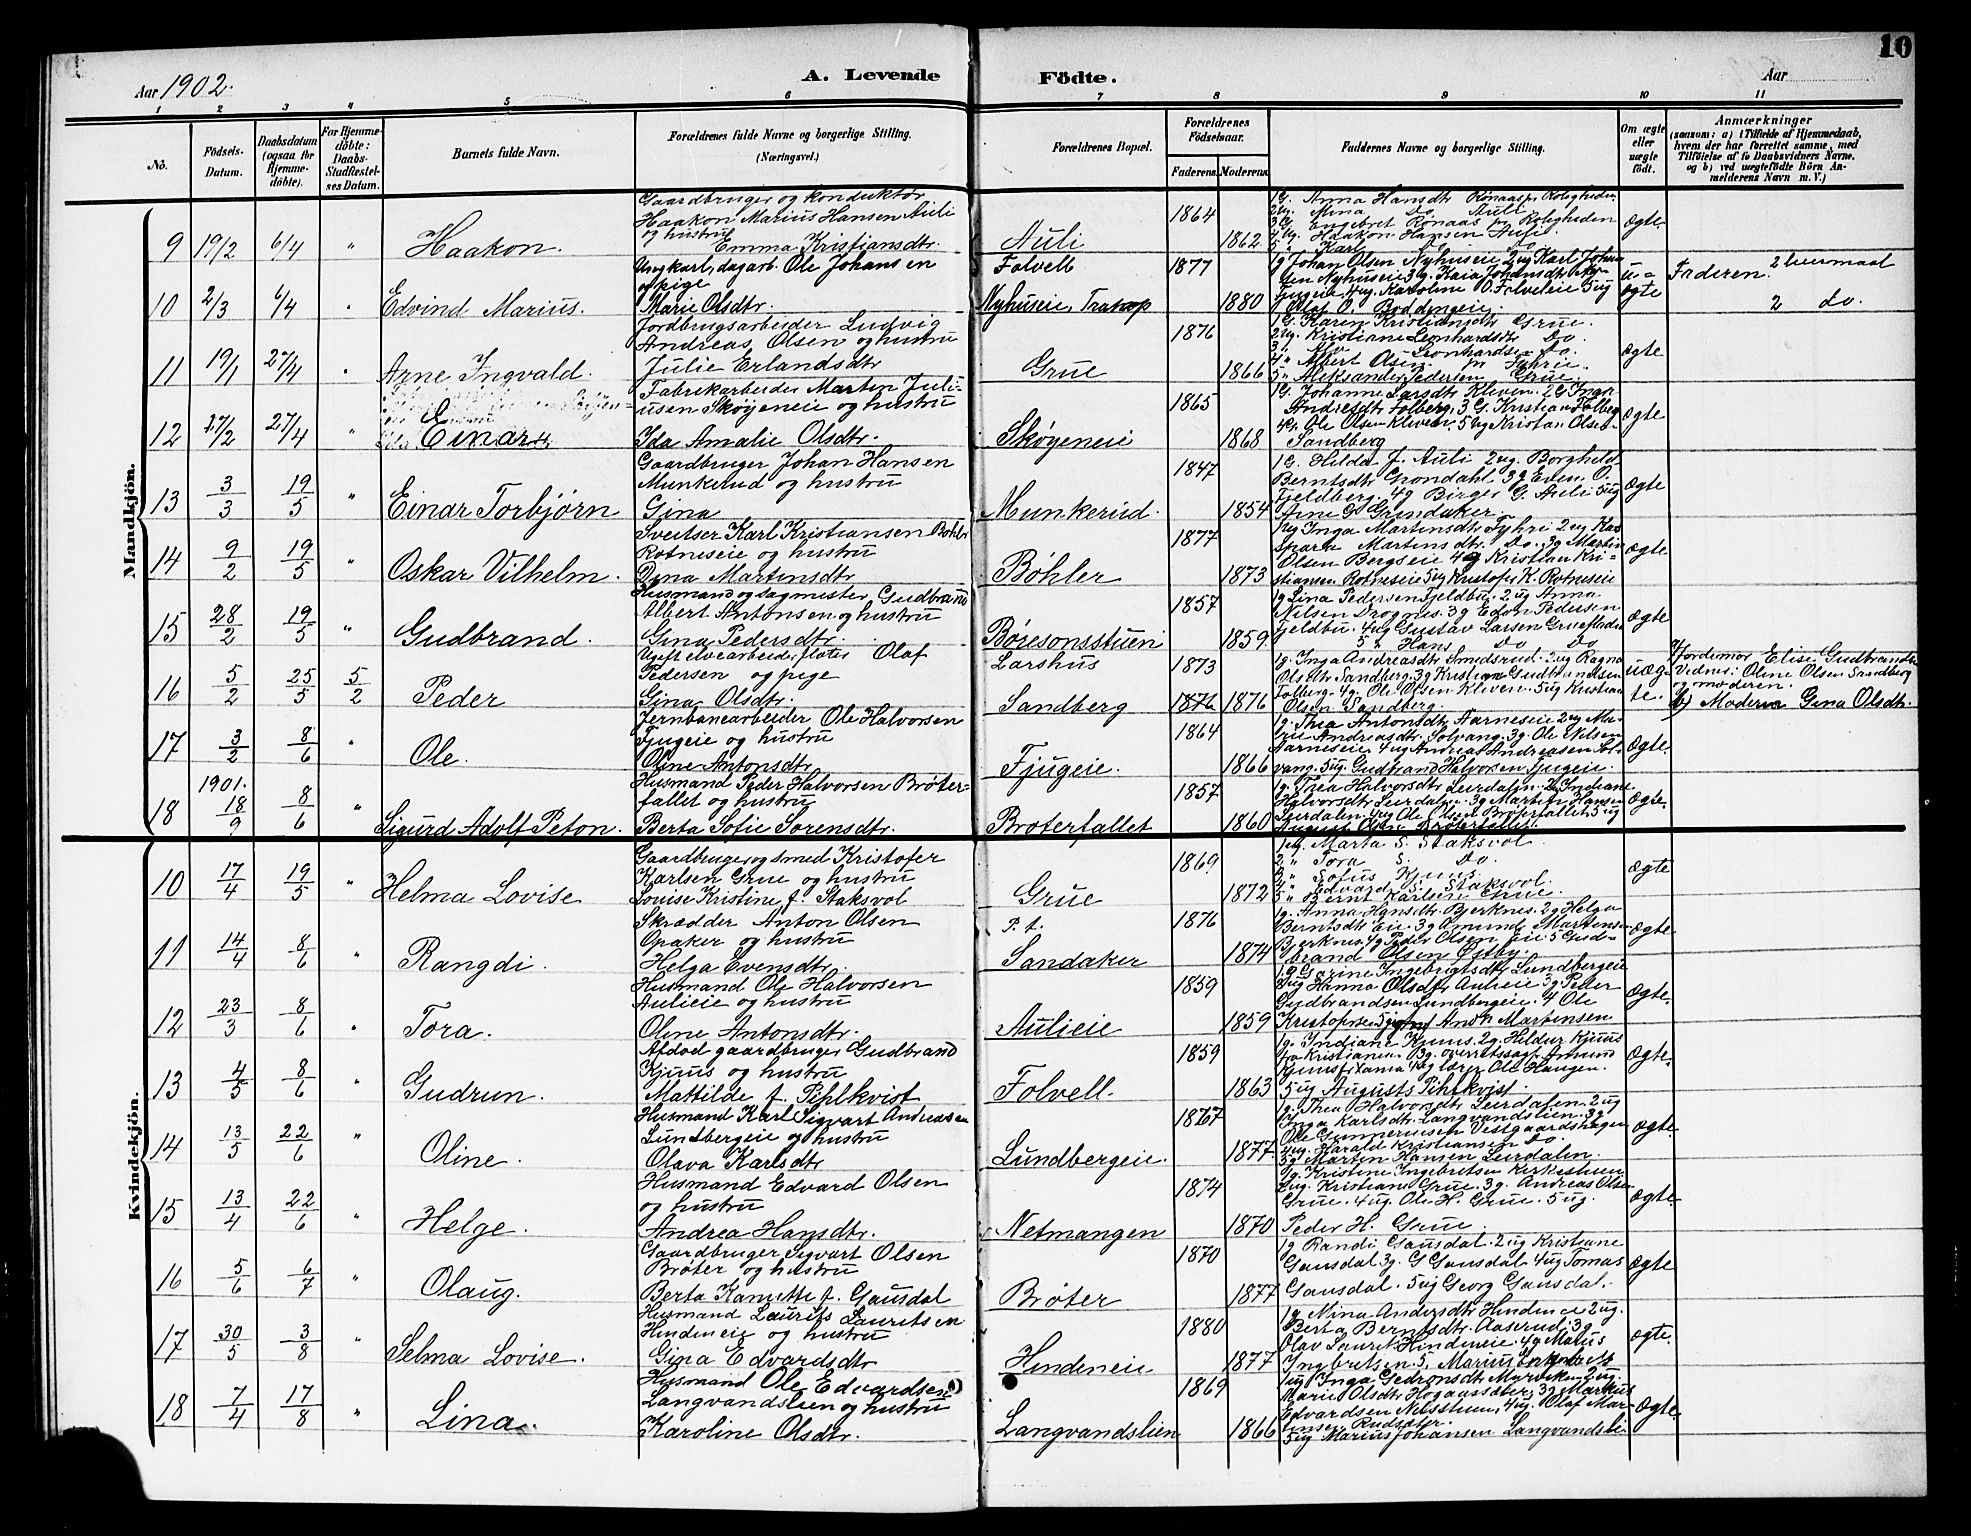 10
Aar 1902.
A. Levende Födte.
Aar
1 2 3 4 5 6 7 8 9 10 11
No.
Födsels-Datum.
Daabsdatum (ogsaa for Hjemmedöbte).
For Hjemmedöbte: Daabs-Stadfæstelses Datum.
Barnets fulde Navn.
Forældrenes fulde Navne og borgerlige Stilling. (Næringsvei.)
Forældrenes Bopæl.
Forældrenes Födselsaar.
Faderens. Moderens.
Faddernes Navne og borgerlige Stilling.
Om ægte eller uægte födt.
Anmærkninger
(saasom: a) i Tilfælde af Hjemmedaab,
hvem der har forrettet samme, med
Tilföielse af to Daabsvidners Navne.
og b) ved uægtefödte Börn An-
melderens Navn m. V.)
Mandkjön.
9 19/2 6/4 " Haakon.
Gaardbruger og konduktør
Haakon Marius Hansen Auli
og hustru
Emma Kristiansdtr.
Auli 1864 1862
1 G. Anna Hansdtr Ronaas pr Roligheden
2 ug. Mina Do. Auli
3 G. Engebret Ronaas pr Roligheden
4 ug. Haakon Hansen Auli
5 " Karl Do Do
ægte
10 2/3 6/4 " Edvind Marius.
Ungkarl, dagarb. Ole Johansen
og pige
Marie Olsdtr.
Folvell
Nyhuseie, 1877 1880
1 g Johan Olsen Nyhuseie 2 ug Karl Johan
sen Nyhuseie 3 g. Kaia Johansdtr
Fjugeie, 4 ug. Karoline O. Folveleie 5 ug
Olaf O.
u-
ægte
Faderen 2
2 do.
11 19/1 27/4 " Arne Ingvald.
Jordbrugsarbeider Ludvig
Andreas Olsen og hustru
Julie Erlandsdtr
Grue 1876 1866
1 G. Karen Kristiansdtr Grue.
2 ug. Kristiane Leonhardsdtr Do.
3 " Leonhardsen Do.
4 " Albert Olsen
5 " Aleksander Pedersen Grue.
ægte
12 27/2 27/4 " Einar
Fabrikarbeider Martin Juli-
usen Skøyeneie og hustru
Ida Amalie Olsdtr.
Skøyeneie 1865 1868
1 G. Johanne Larsdtr Kleven. 2 G Inga
Andresdtr Folberg, 3 G. Kristian Folberg
4 G. Ole Olsen Kleven. 5 ug Kristian Olsen
Sandberg
ægte
13 3/3 19/5 " Einar Torbjørn
Gaardbruger Johan Hansen
Munkerud og hustru
Gina
Munkerud. 1847 1854
1 G. Hilda J. Auli 2 ug. Borghild
Berntsdtr Grøndahl 3 g Even O.
Fjeldberg. 4 g Birger G. Auli 5 ug
Arne G Grindaker
ægte
14 9/2 19/5 " Oskar Vilhelm.
Sveitser Karl Kristiansen Bøhler
Rotneseie og hustru
Dina Martinsdtr
Bøhler 1877 1873
1 ug Inga Martinsdtr Fyhri 2 ug Kas
para Martinsdtr Do. 3 g Martin
Olsen Bergseie 4 g Kristian Kri-
stiansen Rotneseie 5 ug Kristofer K. Rotneseie
ægte
15 28/2 19/5 " Gudbrand.
Husmand og sagmester Gudbrand
Albert Antonsen og hustru
Gina Pedersdtr.
Børesonsstuen 1857 1859.
1 g Lina Pedersen Fjeldbu. 2 ug Anna
Nilsen Drognes. 3 g Edon Pedersen
Fjeldbu. 4 ug Gustav Larsen
5 " Hans Do Do
ægte
16 5/2 25/5 5/2 Peder
Ugift elvearbeider, fløter Olaf
Pedersen og pige
Gina Olsdtr.
Larshus
Sandberg 1873 1876 1876
1 g. Inga Andreasdtr Smedsrud. 2 ug Ragna
Olsdtr Sandberg. 3 g Kristian Gudbrandsen
Folberg. 4 g. Ole Olsen Kleven. 5 ug Kristian
Olsen Sandberg.
uæg-
te.
a) Jordemor Elise Gudbrands
Vidner: Oline Olsen Sandberg
og moderen.
b) Moderen Gina Olsdtr.
17 3/2 8/6 " Ole.
Jernbanearbeider Ole Halvorsen
Fjugeie og hustru
Oline Antonsdtr
Fjugeie. 1864 1866
1 g. Thea Antonsdtr Aarneseie 2 ug Ma-
rie Andreasdtr. Solvang. 3 g. Ole Nilsen
Aarneseie. 4 ug Andreas Andreasen Sol-
vang. 5 ug. Gudbrand Halvorsen Fjugeie.
ægte.
1901.
18 18/9 8/6 " Sigurd Adolf Peton.
Husmand Peder Halvorsen Brøter-
fallet og hustru
Berta Sofie Sørensdtr.
Brøterfallet 1857 1860
1 g. Thea Halvorsdtr Leirdalen. 2 g Indiane
Halvorsdtr Leirdalen. 3 g Martin Hansen
Leirdalen. 4 ug Ole Olsen Brøterfallet. 5 ug
August Olsen Brøterfallet.
ægte.
Kvindekjön.
10 17/4 19/5 " Helma Lovise
Gaardbruger og smed Kristofer
Karlsen Grue og hustru
Lovise Kristine f. Staksvol
Grue 1869 1872
1 ug. Marta S. Staksvol.
2 " Tora S. Do.
3 " Sofus Kjuus.
4 " Edvard S. Staksvol.
5 " Bernt Karlsen Grue.
ægte
11 14/4 8/6 " Rangdi.
Skrædder Anton Olsen
Opaker og hustru
Helga Evensdtr.
P. t.
Sandaker 1876 1874
1 g. Anna Hansdtr. Bjerknes. 2 g Helga
Berntsdtr Eie. 3 g Amund Martinsen
Bjerknes. 4 g Peder Olsen Eie. 5 Gud-
brand Olsen Østby.
ægte.
12 23/3 8/6 " Tora.
Husmand Ole Halvorsen
Aulieie og hustru
Oline Antonsdtr.
Aulieie 1859 1859
1 g Gorine Ingebrigtsdtr Lundbergeie
2 ug Hanna Olsdtr Aulieie 3 g Peder
Gudbrandsen Lundbergeie. 4 Ole
Kristofersen 5 Martinsen
ægte.
13 4/5 8/6 " Gudrun.
Afdød gaardbruger Gudbrand
Kjuus og hustru
Mathilde f. Pihlkvist
Folvell. 1859 1863
1 g. Indiane Kjuus. 2 g. Hildur Kjuus
fra Kristiania 3 g. overretssagf. Amund
Kjuus fr. Xania 4 ug lærer Ole Haugen.
5 ug Augusts Pihlkvist.
ægte.
14 13/5 22/6 " Oline.
Husmand Karl Sigvart Andreasen
Lundbergeie og hustru
Olava Karlsdtr
Lundbergeie. 1867 1877
1 g. Thea Halvorsdtr Leirdalen. 2 ug
Inga Karlsdtr. Langvandslien. 3 g
Ole Gunnerusen Vestgaardshagen
4 ug. Harald Kristiansen Do.
5 g Martin Hansen Leirdalen.
ægte.
15 13/4 22/6 " Helge.
Husmand Edvard Olsen
og hustru
Andrea Hansdtr.
Netmangen 1874 1870
1 g. Kristine Ingebretsen Kirkestuen
2 ug. Kristiane Grue. 3 g. Andreas Olsen
Grue. 4 ug. Ole H. Grue. 5 ug.
Peder H. Grue.
ægte.
16 5/6 6/7 " Olaug.
Gaardbruger Sigvart Olsen
Brøter og hustru
Berta Kanutte f. Gausdal
Brøter 1870 1877
1 g Randi Gausdal. 2 ug Kristiane
Gausdal 3 g. G Gausdal. 4 ug Tomas
Gausdal. 5 ug Georg Gausdal.
ægte
17 30/5 3/8 " Selma Lovise.
Husmand Laurits Lauritsen
Hindeneie og hustru
Gina Edvardsdtr
Hindeneie 1880 1877
1 g. Nina Andersdtr Hindeneie 2 ug.
Berta Berntsdtr. Aaserud. 3 g
Olav Lauret Hindeneie. 4 g Marius
Ingbretsen. 5. Marius
ægte.
18 7/4 17/8 " Lina.
Husmand Ole Edvardsen
Langvandslien og hustru
Karoline Olsdtr.
Langvandslien 1869 1866
1 ug Inga Marviken 2 ug.
Marie Olsdtr Hogaassæter, 3 g Markus
Edvardsen Nilsstuen, 4 ug. Olaf Mar-
tinsen Rudsæter.
5 ug Marius Johansen Langvandsli
ægte.